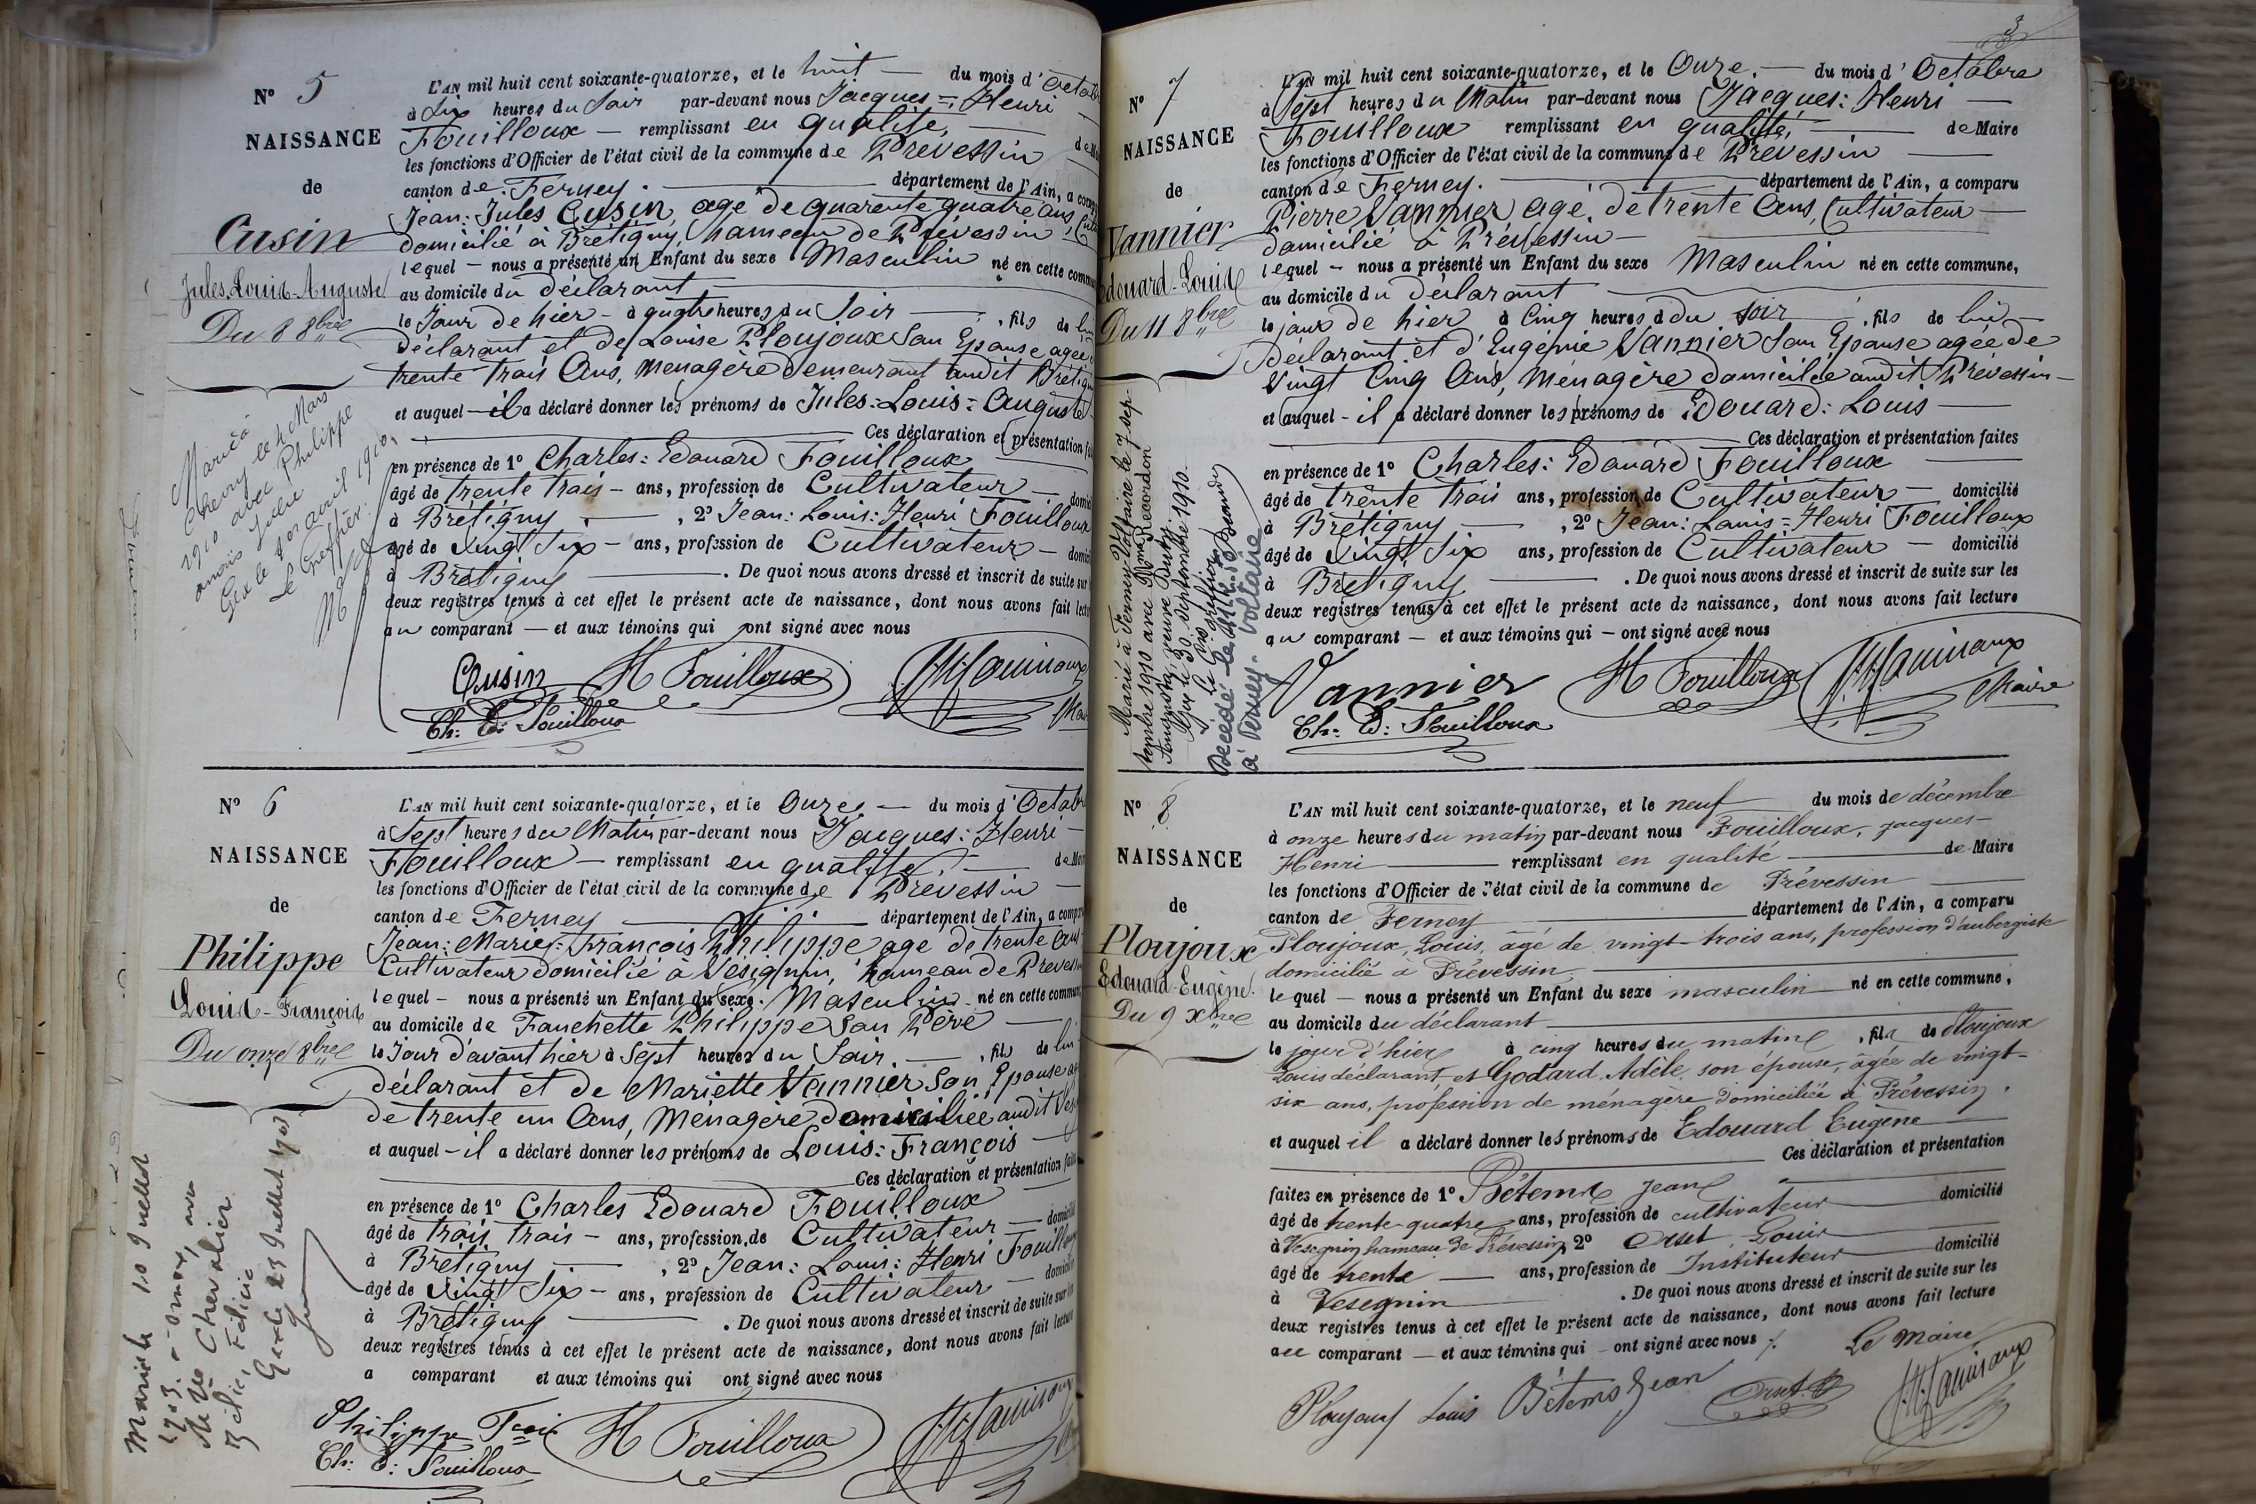 N° 5
NAISSANCE
de
Cusin
Jules Louis Auguste
Du 8 8bre
Marié à
Chevry le 2 Mars
1910 avec Philippe
Julie
Gex le 1er avril 1910.
Le Greffier:
L'AN mil huit cent soixante-quatorze, et le huit — du mois d'Octob
à Six heures du Soir par-devant nous Jacques=Henri
Fouilloux — remplissant en qualité,
les fonctions d'Officier de l'état civil de la commune de Prévessin
canton de Ferney. — département de l'Ain, a comp
Jean: Jules Cusin, agé de quarante quatre ans, Cult
domicilié à Brétigny, hameau de Prévessin
lequel — nous a présenté un Enfant du sexe Masculin né en cette commun
au domicile du déclarant
le Jour de hier — à quatre heures du Soir — , fils de lui
déclarant et de Louise Ploujoux San Epouse agée
trente trois Ans, Menagère demeurant audit Brétign
et auquel — il a déclaré donner les prénoms de Jules=Louis=Auguste
Ces déclaration et présentation fa
en présence de 1° Charles: Edouard Fouilloux
âgé de trente trois — ans, profession de Cultivateur — domici
à Brétigny — , 2° Jean: Louis: Henri Fouilloux
âgé de Vingt Six — ans, profession de Cultivateur — domici
à Brétigny — . De quoi nous avons dressé et inscrit de suite sur
deux registres tenus à cet effet le présent acte de naissance, dont nous avons fait lectu
au comparant — et aux témoins qui ont signé avec nous
Cusin H Fouilloux
Ch: E: Fouilloux
N° 6
NAISSANCE
de
Philippe
Louis-François
Du onze 8bre
Marié le 10 Juillet
1903, à Ornex, avec
Chevalier
Gex le 23 Juillet 1903
L'AN mil huit cent soixante-quatorze, et le Onze — du mois d'Octob
à Sept heures du Matin par-devant nous Jacques: Henri —
Fouilloux — remplissant en qualité, — de Mai
les fonctions d'Officier de l'état civil de la commune de Prévessin —
canton de Ferney — département de l'Ain, a compar
Jean: Marie: François Philippe agé de trente Ans
Cultivateur domicilié à Vésegnin, hameau de Prévess
lequel — nous a présenté un Enfant du sexe. Masculin né en cette commun
au domicile de Franchette Philippe San Père —
le Jour d'avant hier à Sept heures du Soir. — , fils de lui
déclarant et de Mariette Vannier San Epouse a
de trente un Ans, Ménagère domiciliée audit Vés
et auquel — il a déclaré donner les prénoms de Louis: François —
Ces déclaration et présentation faite
en présence de 1° Charles Edouard Fouilloux —
âgé de trois trois — ans, profession de Cultivateur — domicilié
à Brétigny — , 2° Jean: Louis: Henri Fouill
âgé de Vingt Six — ans, profession de Cultivateur — domicil
à Brétigny — . De quoi nous avons dressé et inscrit de suite sur
deux registres tenus à cet effet le présent acte de naissance, dont nous avons fait lecture
a comparant et aux témoins qui ont signé avec nous
Philippe Fcois H Fouilloux
Ch: E: Fouilloux
3
N° 7
NAISSANCE
de
Vannier
Edouard-Louis
Du 11 8bre
Marié à Ferney-Voltaire le 7 sep-
tembre 1910 avec Recordon
Gex le 30 Septembre 1910.
Le Greffier
Décédé
à Ferney-Voltaire
L'AN mil huit cent soixante-quatorze, et le Onze. — du mois d'Octobre
à Sept heures du Matin par-devant nous Jacques: Henri —
Fouilloux remplissant en qualité, — de Maire
les fonctions d'Officier de l'état civil de la commune de Prévessin —
canton de Ferney. — département de l'Ain, a comparu
Pierre Vannier agé, de trente Ans, Cultivateur —
domicilié à Prévessin —
lequel — nous a présenté un Enfant du sexe Masculin né en cette commune,
au domicile du déclarant —
le jour de hier à Cinq heures d du soir , fils de lui —
déclarant et d'Eugénie Vannier San Epouse agée de
Vingt Cinq Ans, Ménagère domiciliée audit Prévessin —
et auquel — il a déclaré donner les prénoms de Edouard: Louis —
Ces déclaration et présentation faites
en présence de 1° Charles: Edouard Fouilloux —
âgé de trente trois ans, profession de Cultivateur — domicilié
à Brétigny — , 2° Jean: Louis=Henri Fouilloux
âgé de Vingt Six ans, profession de Cultivateur — domicilié
à Brétigny — . De quoi nous avons dressé et inscrit de suite sur les
deux registres tenus à cet effet le présent acte de naissance, dont nous avons fait lecture
au comparant — et aux témoins qui — ont signé avec nous
Vannier H Fouilloux
Ch: E: Fouilloux Maire
N° 8
NAISSANCE
de
Ploujoux
Edouard-Eugène.
Du 9 Xbre
L'AN mil huit cent soixante-quatorze, et le neuf — du mois de décembre
à onze heures du matin par-devant nous Fouilloux, Jacques-
Henri — remplissant en qualité — de Maire
les fonctions d'Officier de l'état civil de la commune de Prévessin —
canton de Ferney — département de l'Ain, a comparu
Ploujoux, Louis, âgé de vingt-trois ans, profession d'aubergiste
domicilié à Prévessin —
lequel — nous a présenté un Enfant du sexe masculin — né en cette commune,
au domicile du déclarant —
le jour d'hier à cinq heures du matin , fils de Ploujoux
Louis déclarant, et Godard, Adèle, son épouse, âgée de vingt-
six ans, profession de ménagère domiciliée à Prévessin.
et auquel il a déclaré donner les prénoms de Edouard Eugène —
Ces déclaration et présentation
faites en présence de 1° Bétems Jean — domicilié
âgé de trente-quatre ans, profession de cultivateur
à Vesegnin hameau de Prévessin 2° Orset Louis —
âgé de trente — ans, profession de Instituteur — domicilié
à Vesegnin — . De quoi nous avons dressé et inscrit de suite sur les
deux registres tenus à cet effet le présent acte de naissance, dont nous avons fait lecture
au comparant — et aux témoins qui — ont signé avec nous /.
Le Maire
Ploujoux Louis Bétems Jean Orset